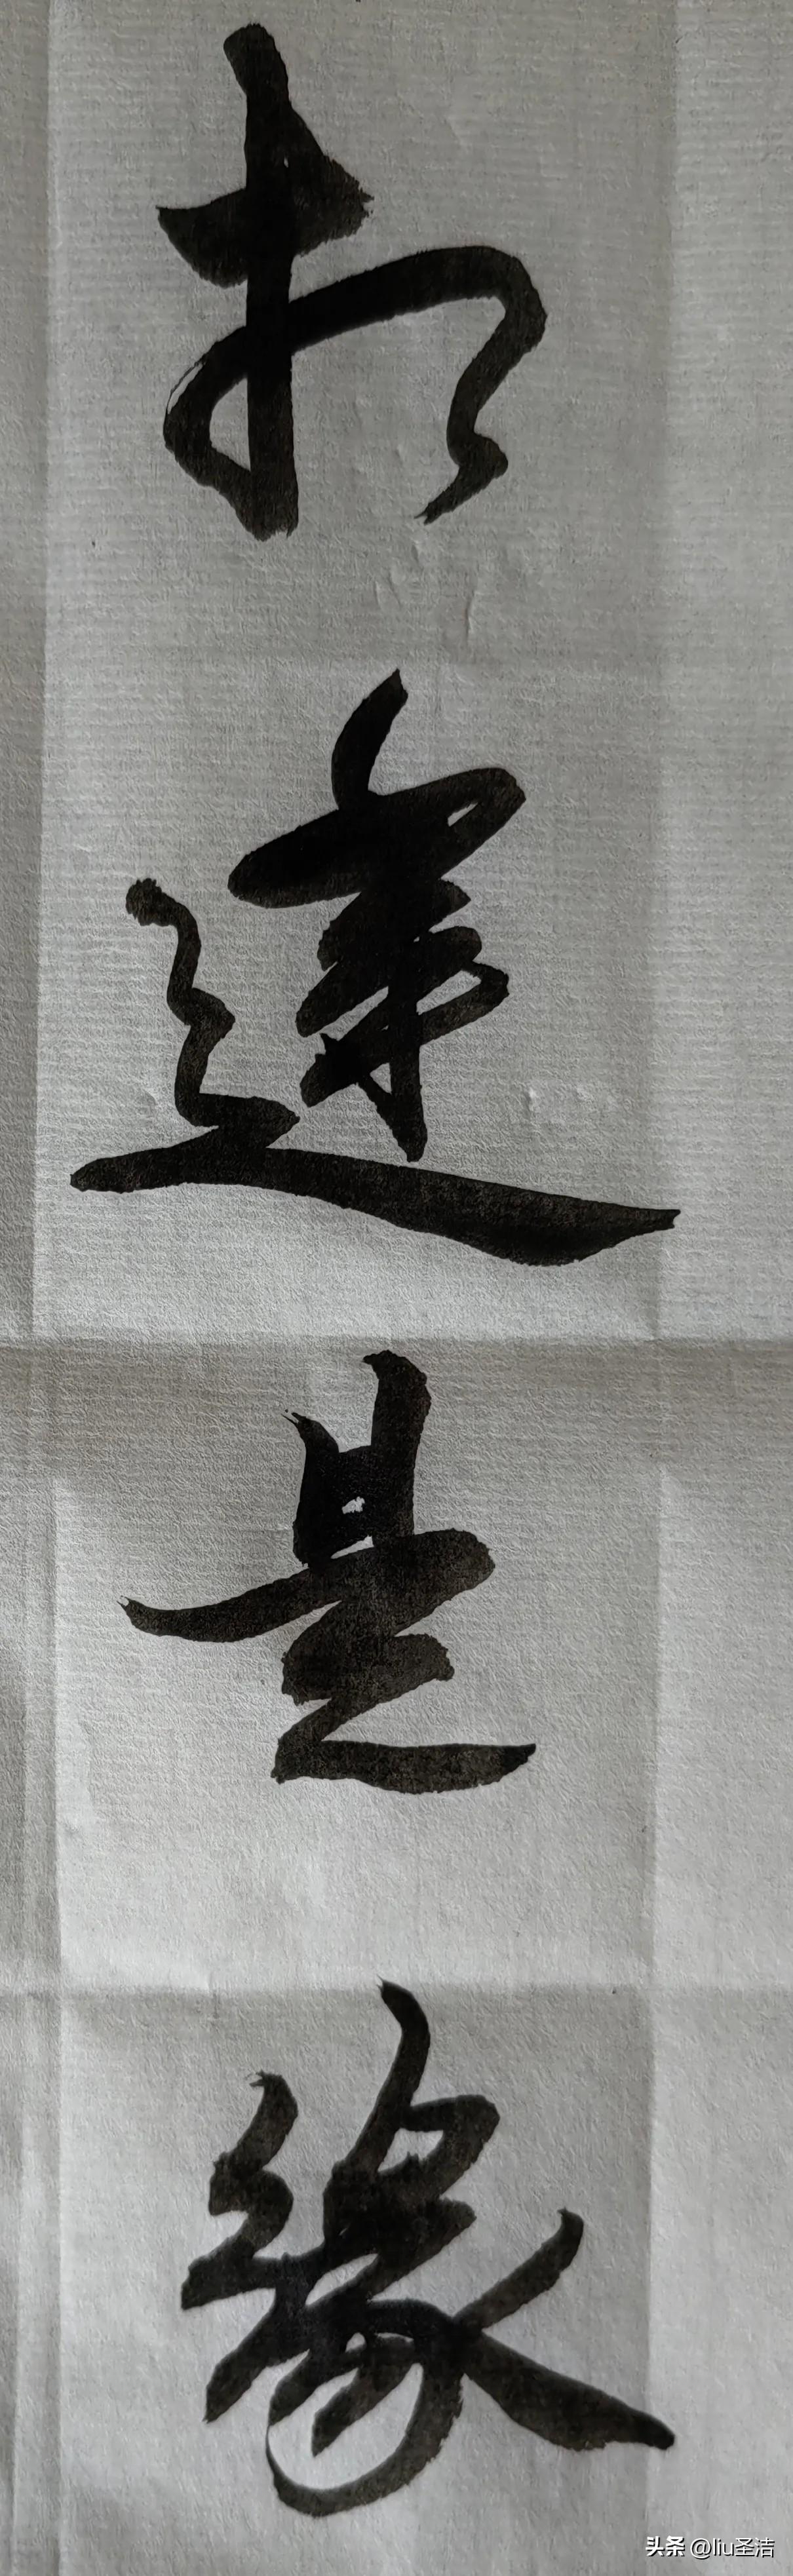 相逢是缘
头条 @liu圣洁